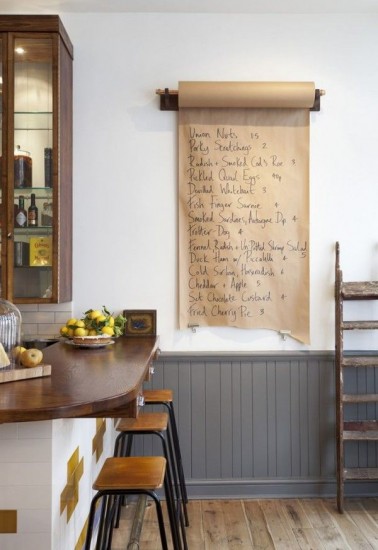 Union Nuts 1.5
Porky Scratchings 2
Radish + Smoked Cod's Roe 3
Pickled Quail Eggs 40p
Devilled Whitebait 3
Fish Finger Sarnie 4
Smoked Sardines, Aubergine Dip 4
Potter-Dog 4
Fennel, Radish + Potted Shrimp Salad 5
Duck Ham w/ Piccalilli 4
Cold Sirloin, Horseradish 4
Cheddar + Apple 5
Salt Chocolate Custard 4
Fried Cherry Pie 3